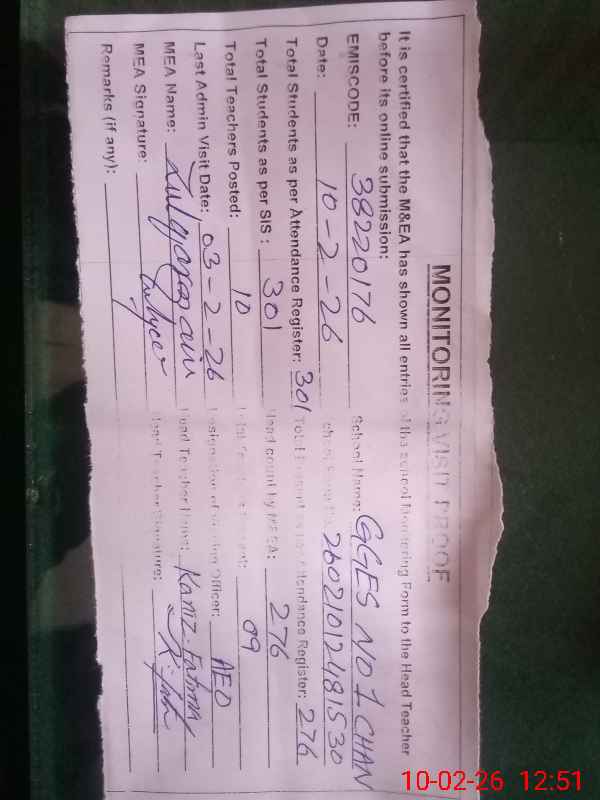 MONITORING VISIT PROOF
It is certified that the M&EA has shown all entries of the school Monitoring Form to the Head Teacher
before its online submission:
EMISCODE: 38220176 School Name: GGES NO 1 CHAN
Date: 10-2-26 26021012481530
Total Students as per Attendance Register: 301 Total Present as per Attendance Register: 276
Total Students as per SIS: 301 Head count by MEA: 276
Total Teachers Posted: 10 Total Teachers Present: 09
Last Admin Visit Date: 03-2-26 Designation of Visiting Officer: AEO
MEA Name: Head Teacher Name: Kaniz Fatima
MEA Signature: Head Teacher Signature:
Remarks (if any):
10-02-26 12:51